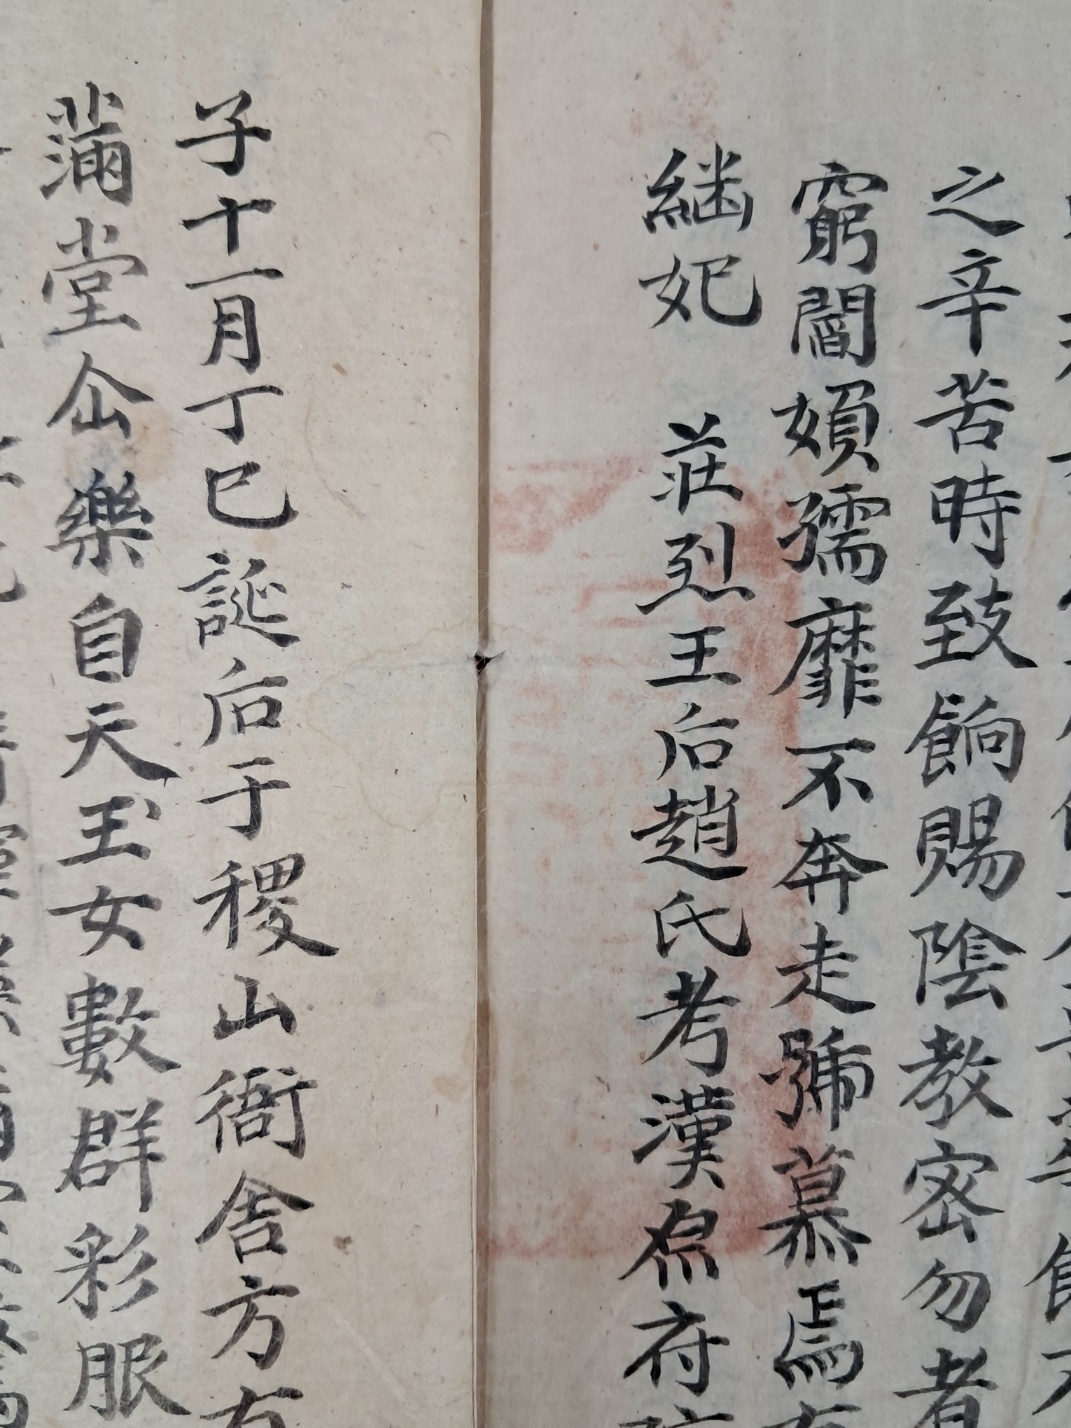 之辛苦時致餉賜陰教密勿者
窮閻嬪孺靡不奔走號慕焉有
繼妃 莊烈王后趙氏考漢原府院
子十一月丁巳誕后于稷山衙舍方有
滿堂仙樂自天玉女數群彩服